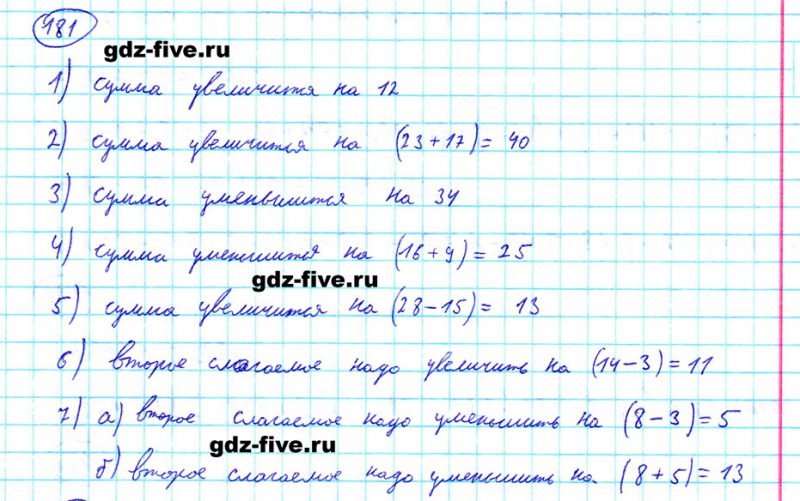 181
gdz-five.ru
1) сумма увеличится на 12
2) сумма увеличится на (23+17)= 40
3) сумма уменьшится на 34
4) сумма уменьшится на (16+9)= 25
gdz-five.ru
5) сумма увеличится на (28-15)= 13
6) второе слагаемое надо увеличить на (14-3)=11
7) а) второе слагаемое надо уменьшить на (8-3)=5
gdz-five.ru
б) второе слагаемое надо уменьшить на (8+5)=13